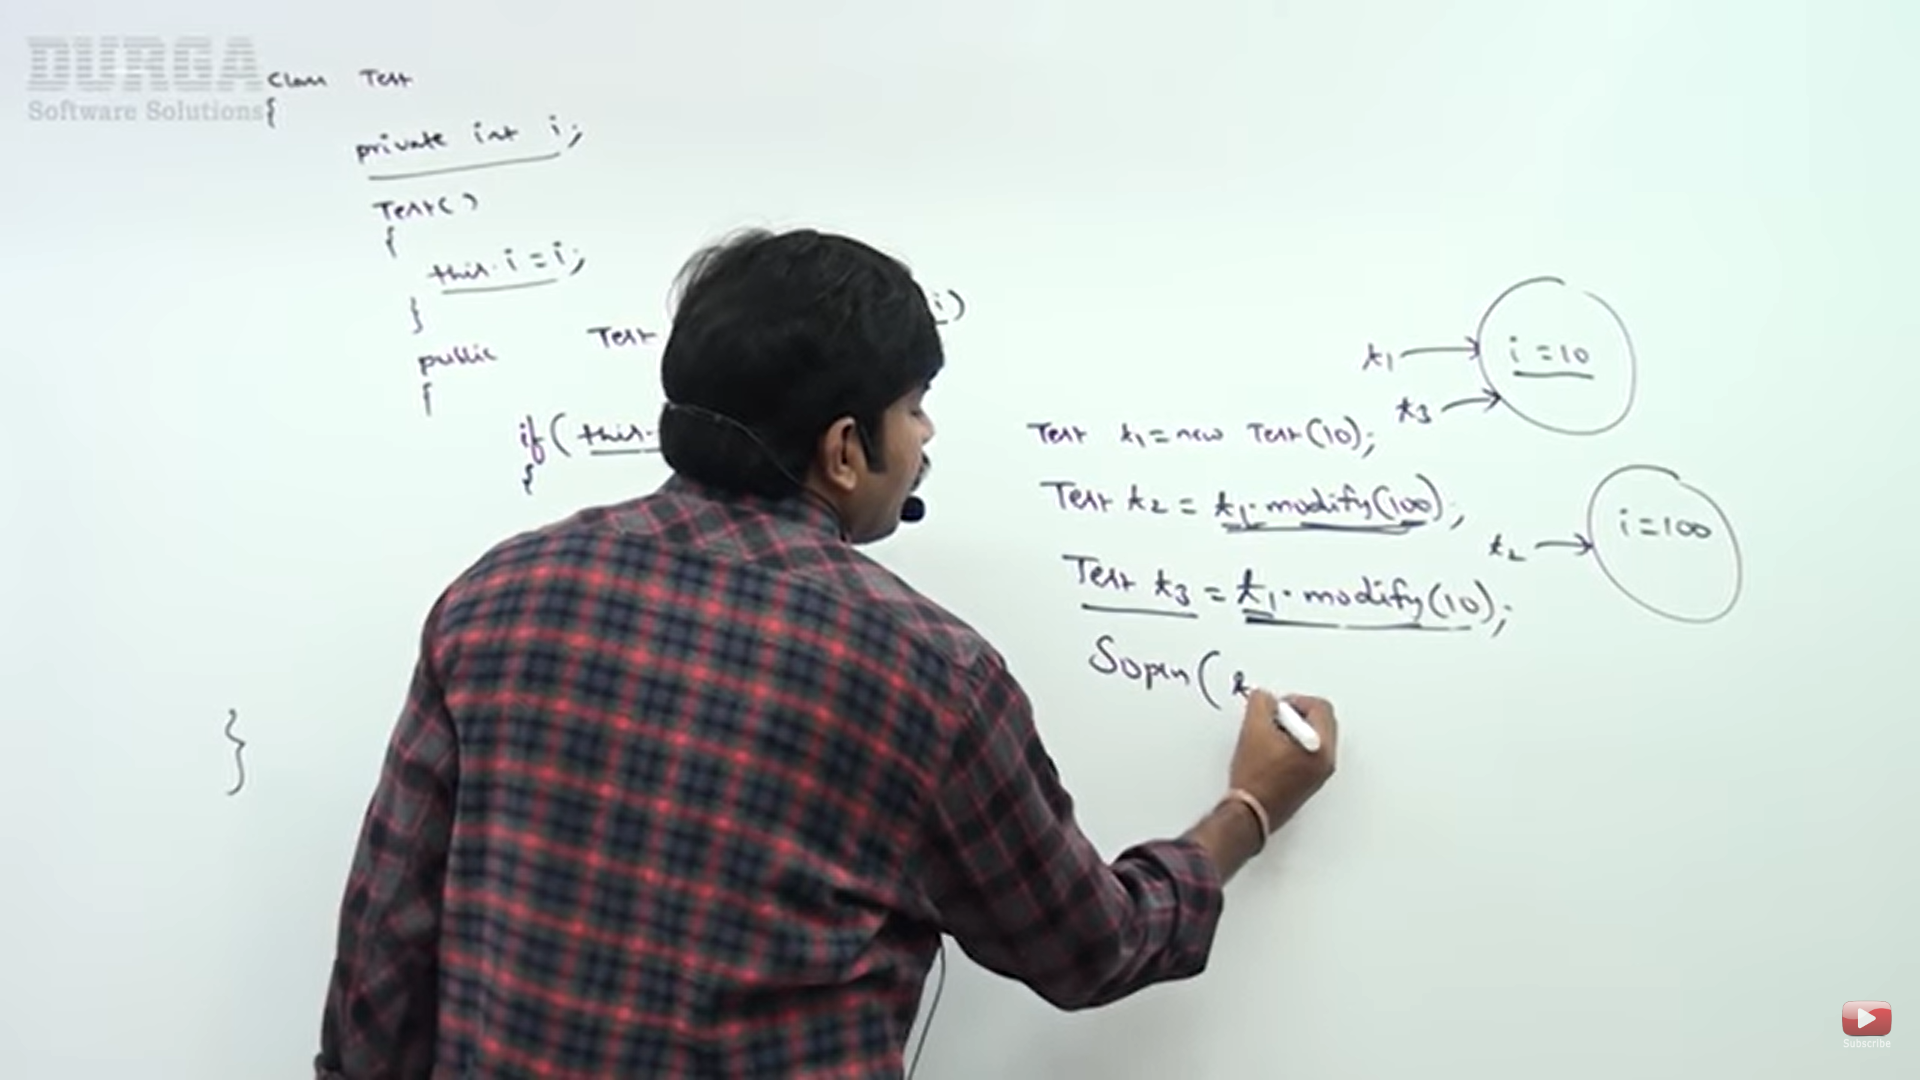 DURGA
Software Solutions
class Test
{
private int i;
Test()
{
this.i = i;
}
public Test i)
{
if( this.
{
}
t1
i = 10
t3
Test t1 = new Test(10);
Test t2 = t1.modify(100);
t2
i = 100
Test t3 = t1.modify(10);
Sopln( t
Subscribe